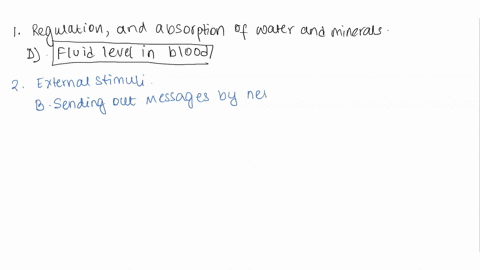 1. Regulation, and absorption of water and minerals.
D). Fluid level in blood
2. External stimuli.
B. Sending out messages by ner